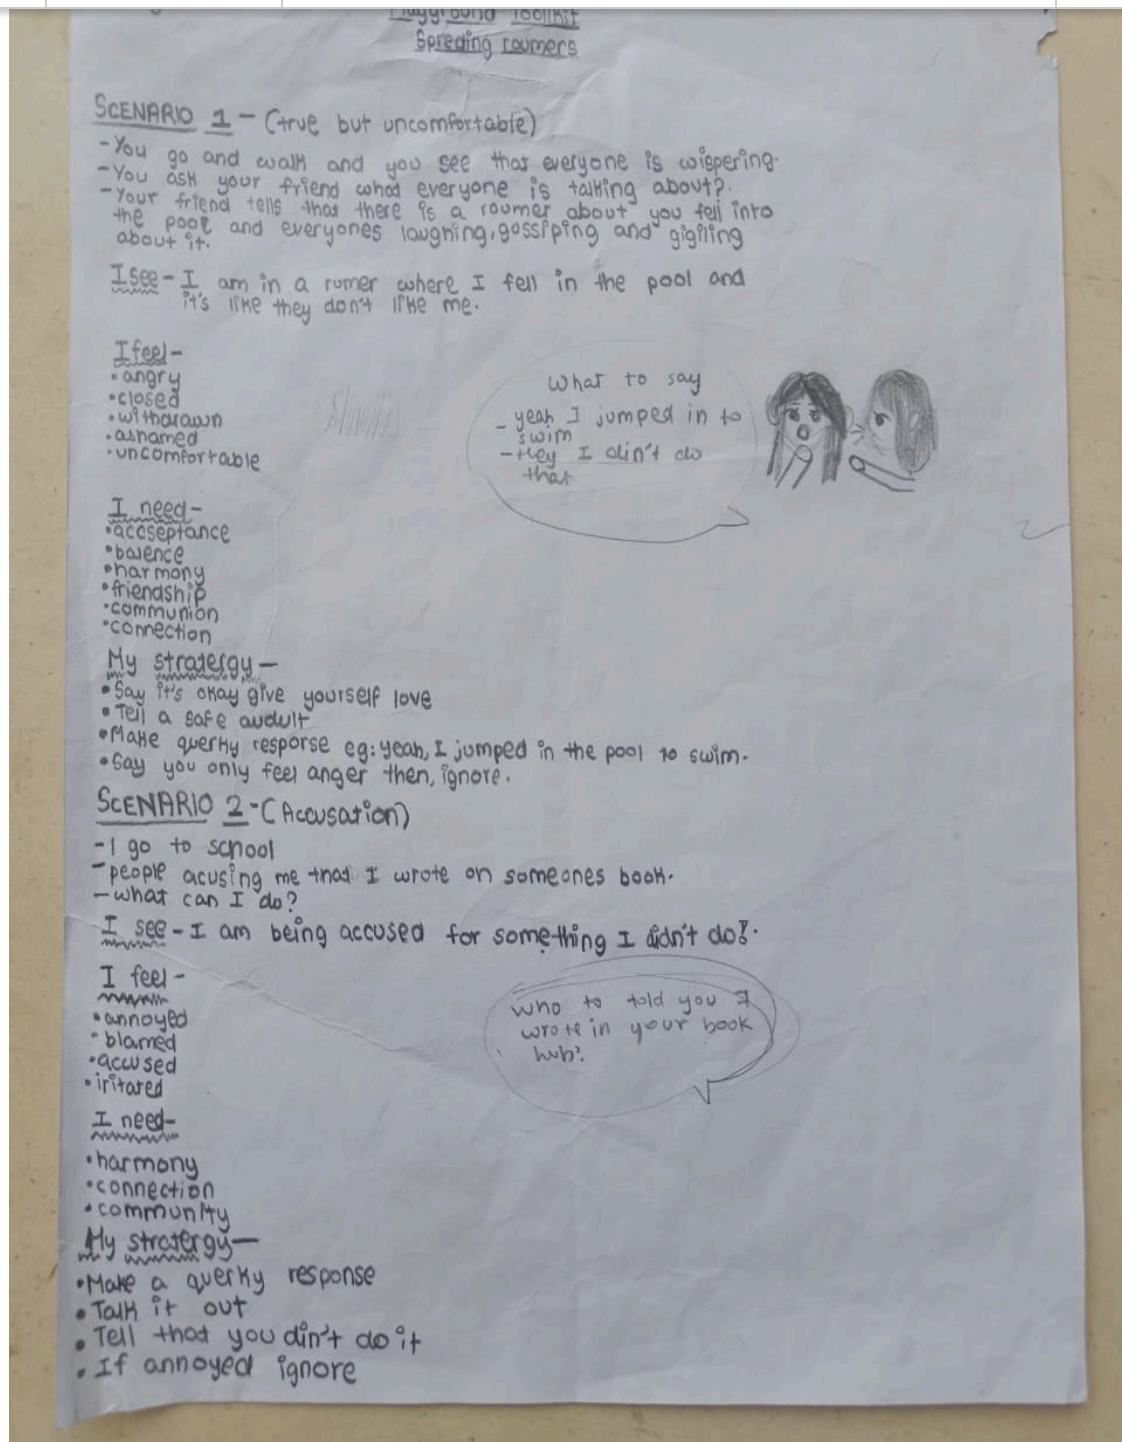 Playground Toolkit
Spreding roumers
SCENARIO 1 - (true but uncomfortable)
- You go and walk and you see that everyone is wispering.
- You ask your friend whad everyone is talking about?.
- Your friend tells that there is a roumer about you fell into
the pool and everyones laughing, gossiping and gigiling
about it.
I see - I am in a romer where I fell in the pool and
it's like they don't like me.
I feel -
• angry
• closed
• withdrawn
• ashamed
• uncomfortable
What to say
- yeah I jumped in to
swim
- Hey I din't do
that
I need -
• accseptance
• balence
• harmony
• friendship
• communion
• connection
My stratergy -
• Say it's okay give yourself love
• Tell a safe audult
• Make querky response eg: yeah, I jumped in the pool to swim.
• Say you only feel anger then, ignore.
SCENARIO 2 - (Accusation)
- I go to school
- people acusing me thad I wrote on someones book.
- what can I do?
I see - I am being accused for something I didn't do!.
I feel -
• annoyed
• blamed
• accused
• iritared
who to told you I
wrote in your book
huh?
I need -
• harmony
• connection
• community
My stratergy -
• Make a querky response
• Talk it out
• Tell thad you din't do it
• If annoyed ignore